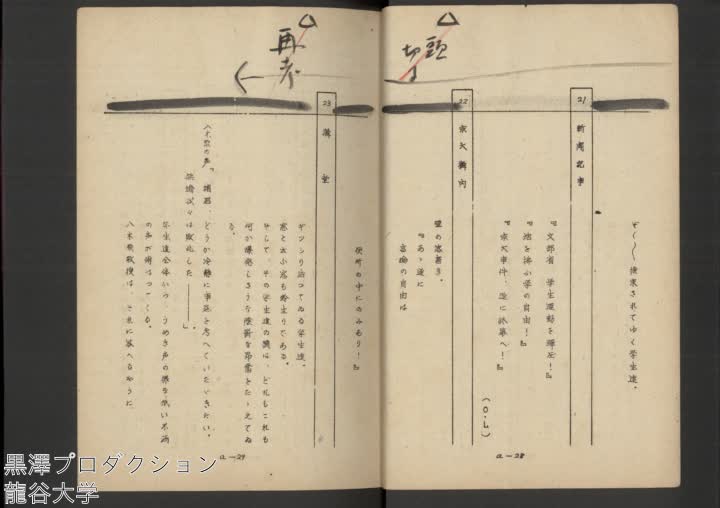 ぞく〱 検束されてゆく学生達。
21 新聞記事
『文部省 学生運動を弾圧!』
『滝を挟ふ学の自由!』
『京大事件、遂に終幕へ!』
(O・L)
22 京大構内
壁の落書き。
『あゝ遂に
言論の自由は
頭
切リ
a-28
便所の中にのみあり!』
23 講堂
ギツシリ詰つてゐる学生達。
窓と云ふ窓も鈴生りである。
そして、その学生達の顔は、どれもこれも
何か爆発しさうな陰鬱な昂奮をたゝえてゐ
る。
八木原の声『諸君、どうか冷静に事態を考へていたゞきたい。
我々は敗北した———』
学生達全体から、うめき声の様な低い不満
の声が湧上つてくる。
八木原教授は、それに答へるやうに
再考
a-29
黒澤プロダクション
龍谷大学